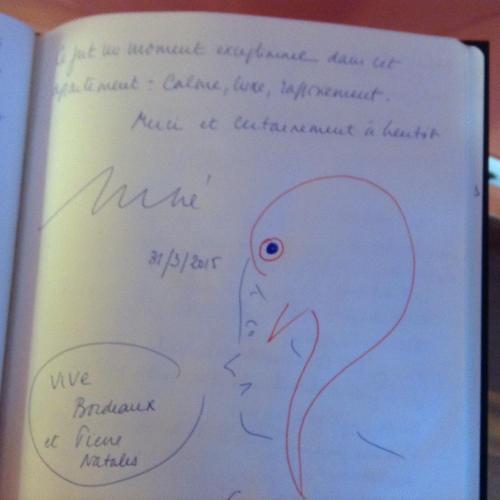 Ce fut un moment exceptionnel dans cet
appartement : Calme, luxe, raffinement.
Merci et certainement à bientôt
31/3/2015
Vive
Bordeaux
et
Natales